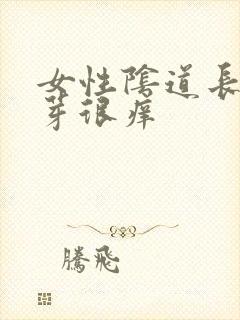 女性陰道長
芽很痒
騰飛